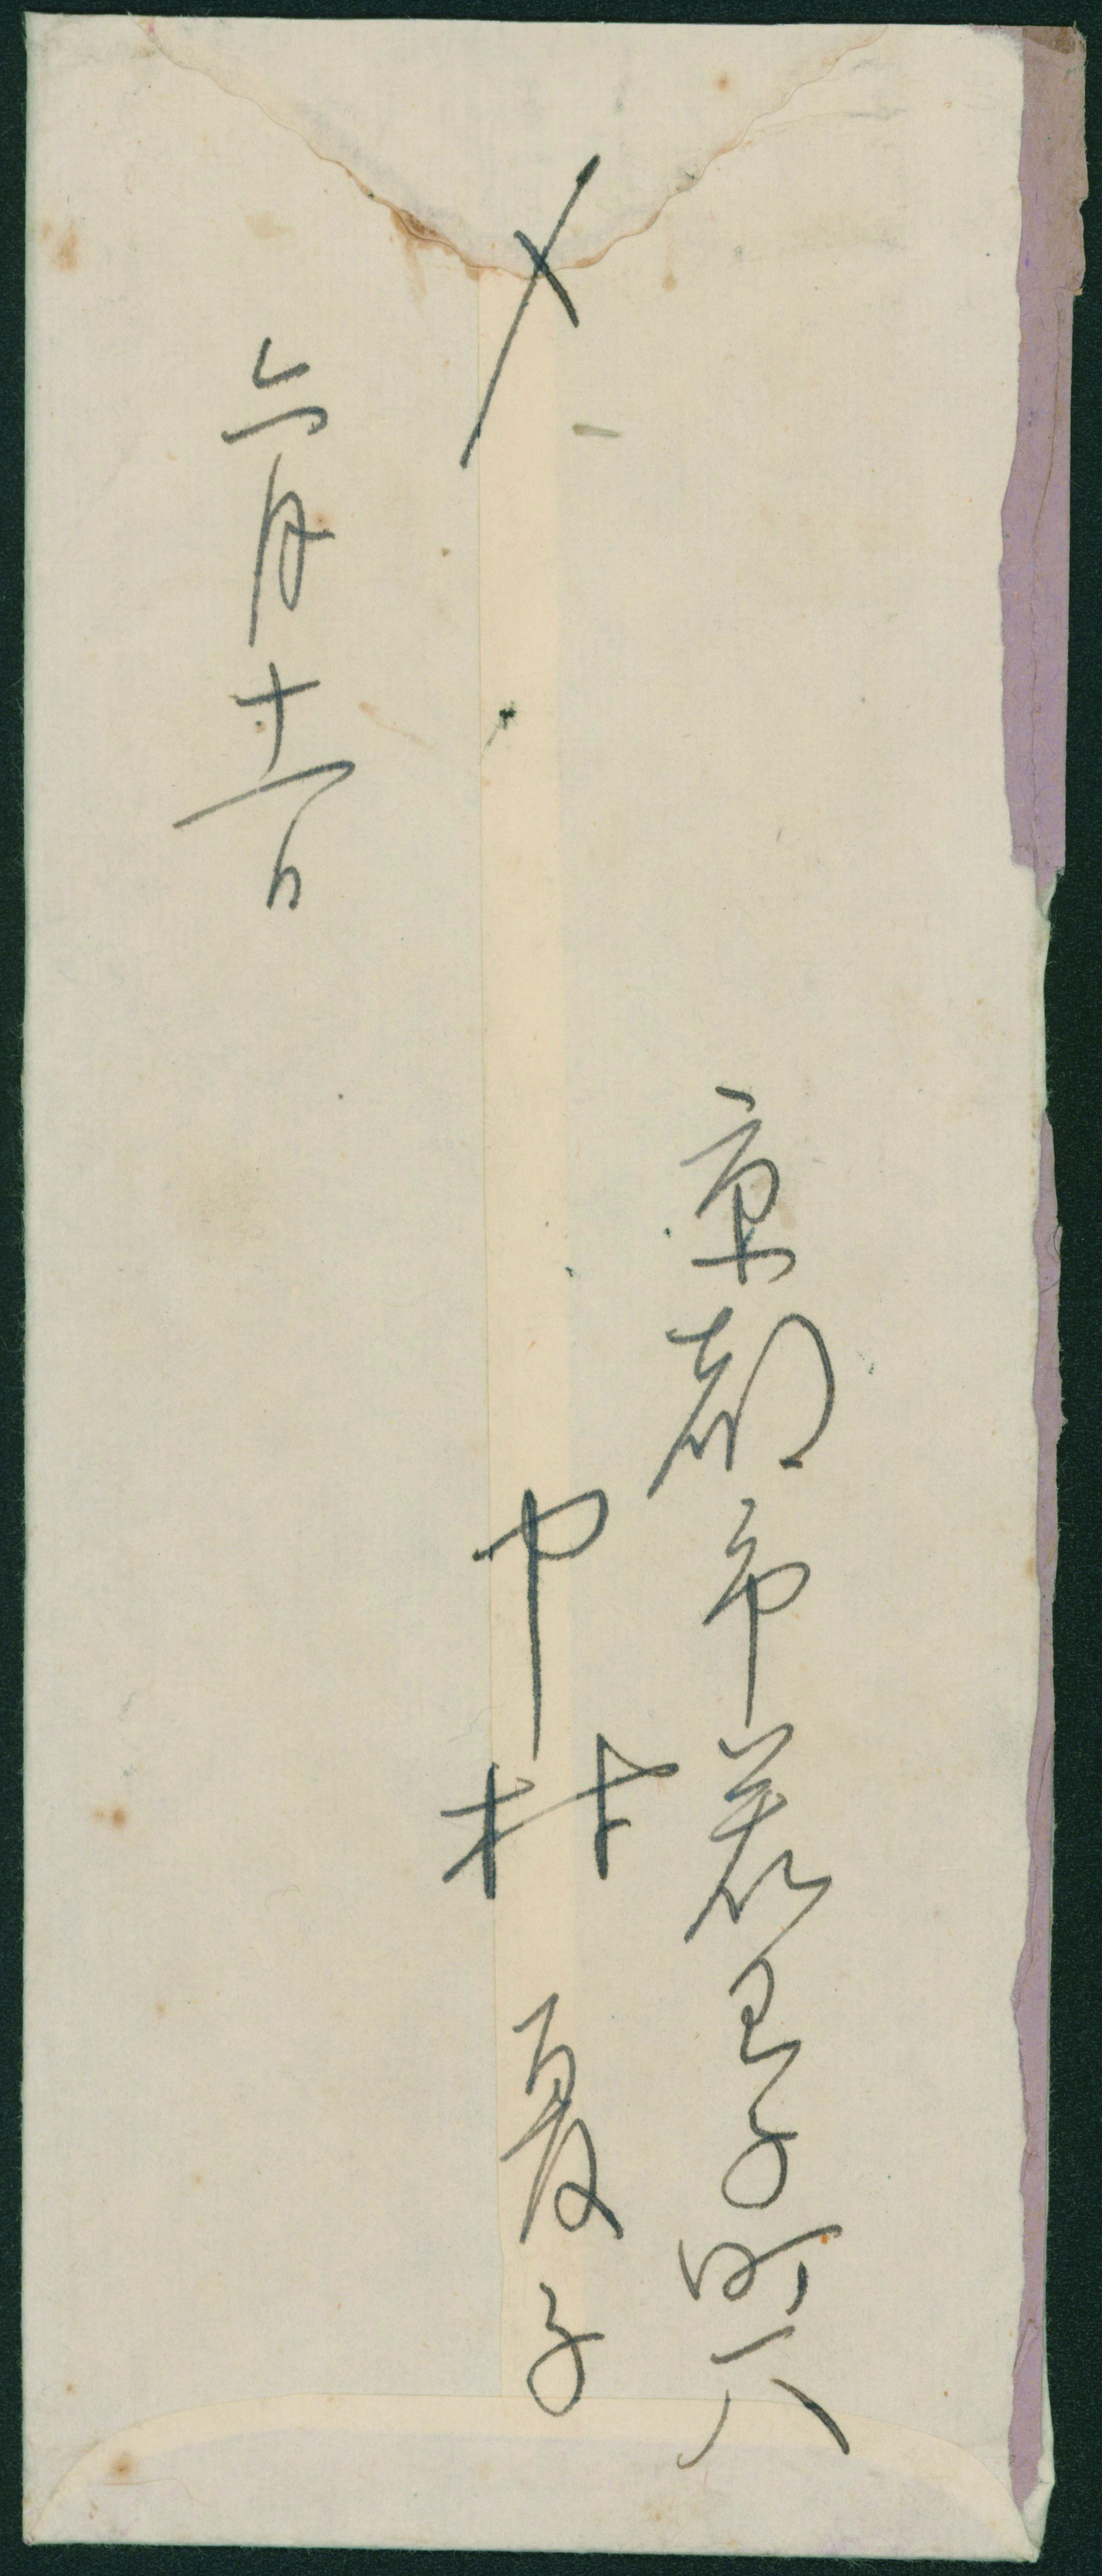 〆
京都市若王子町一八
中村夏子
六月十一日